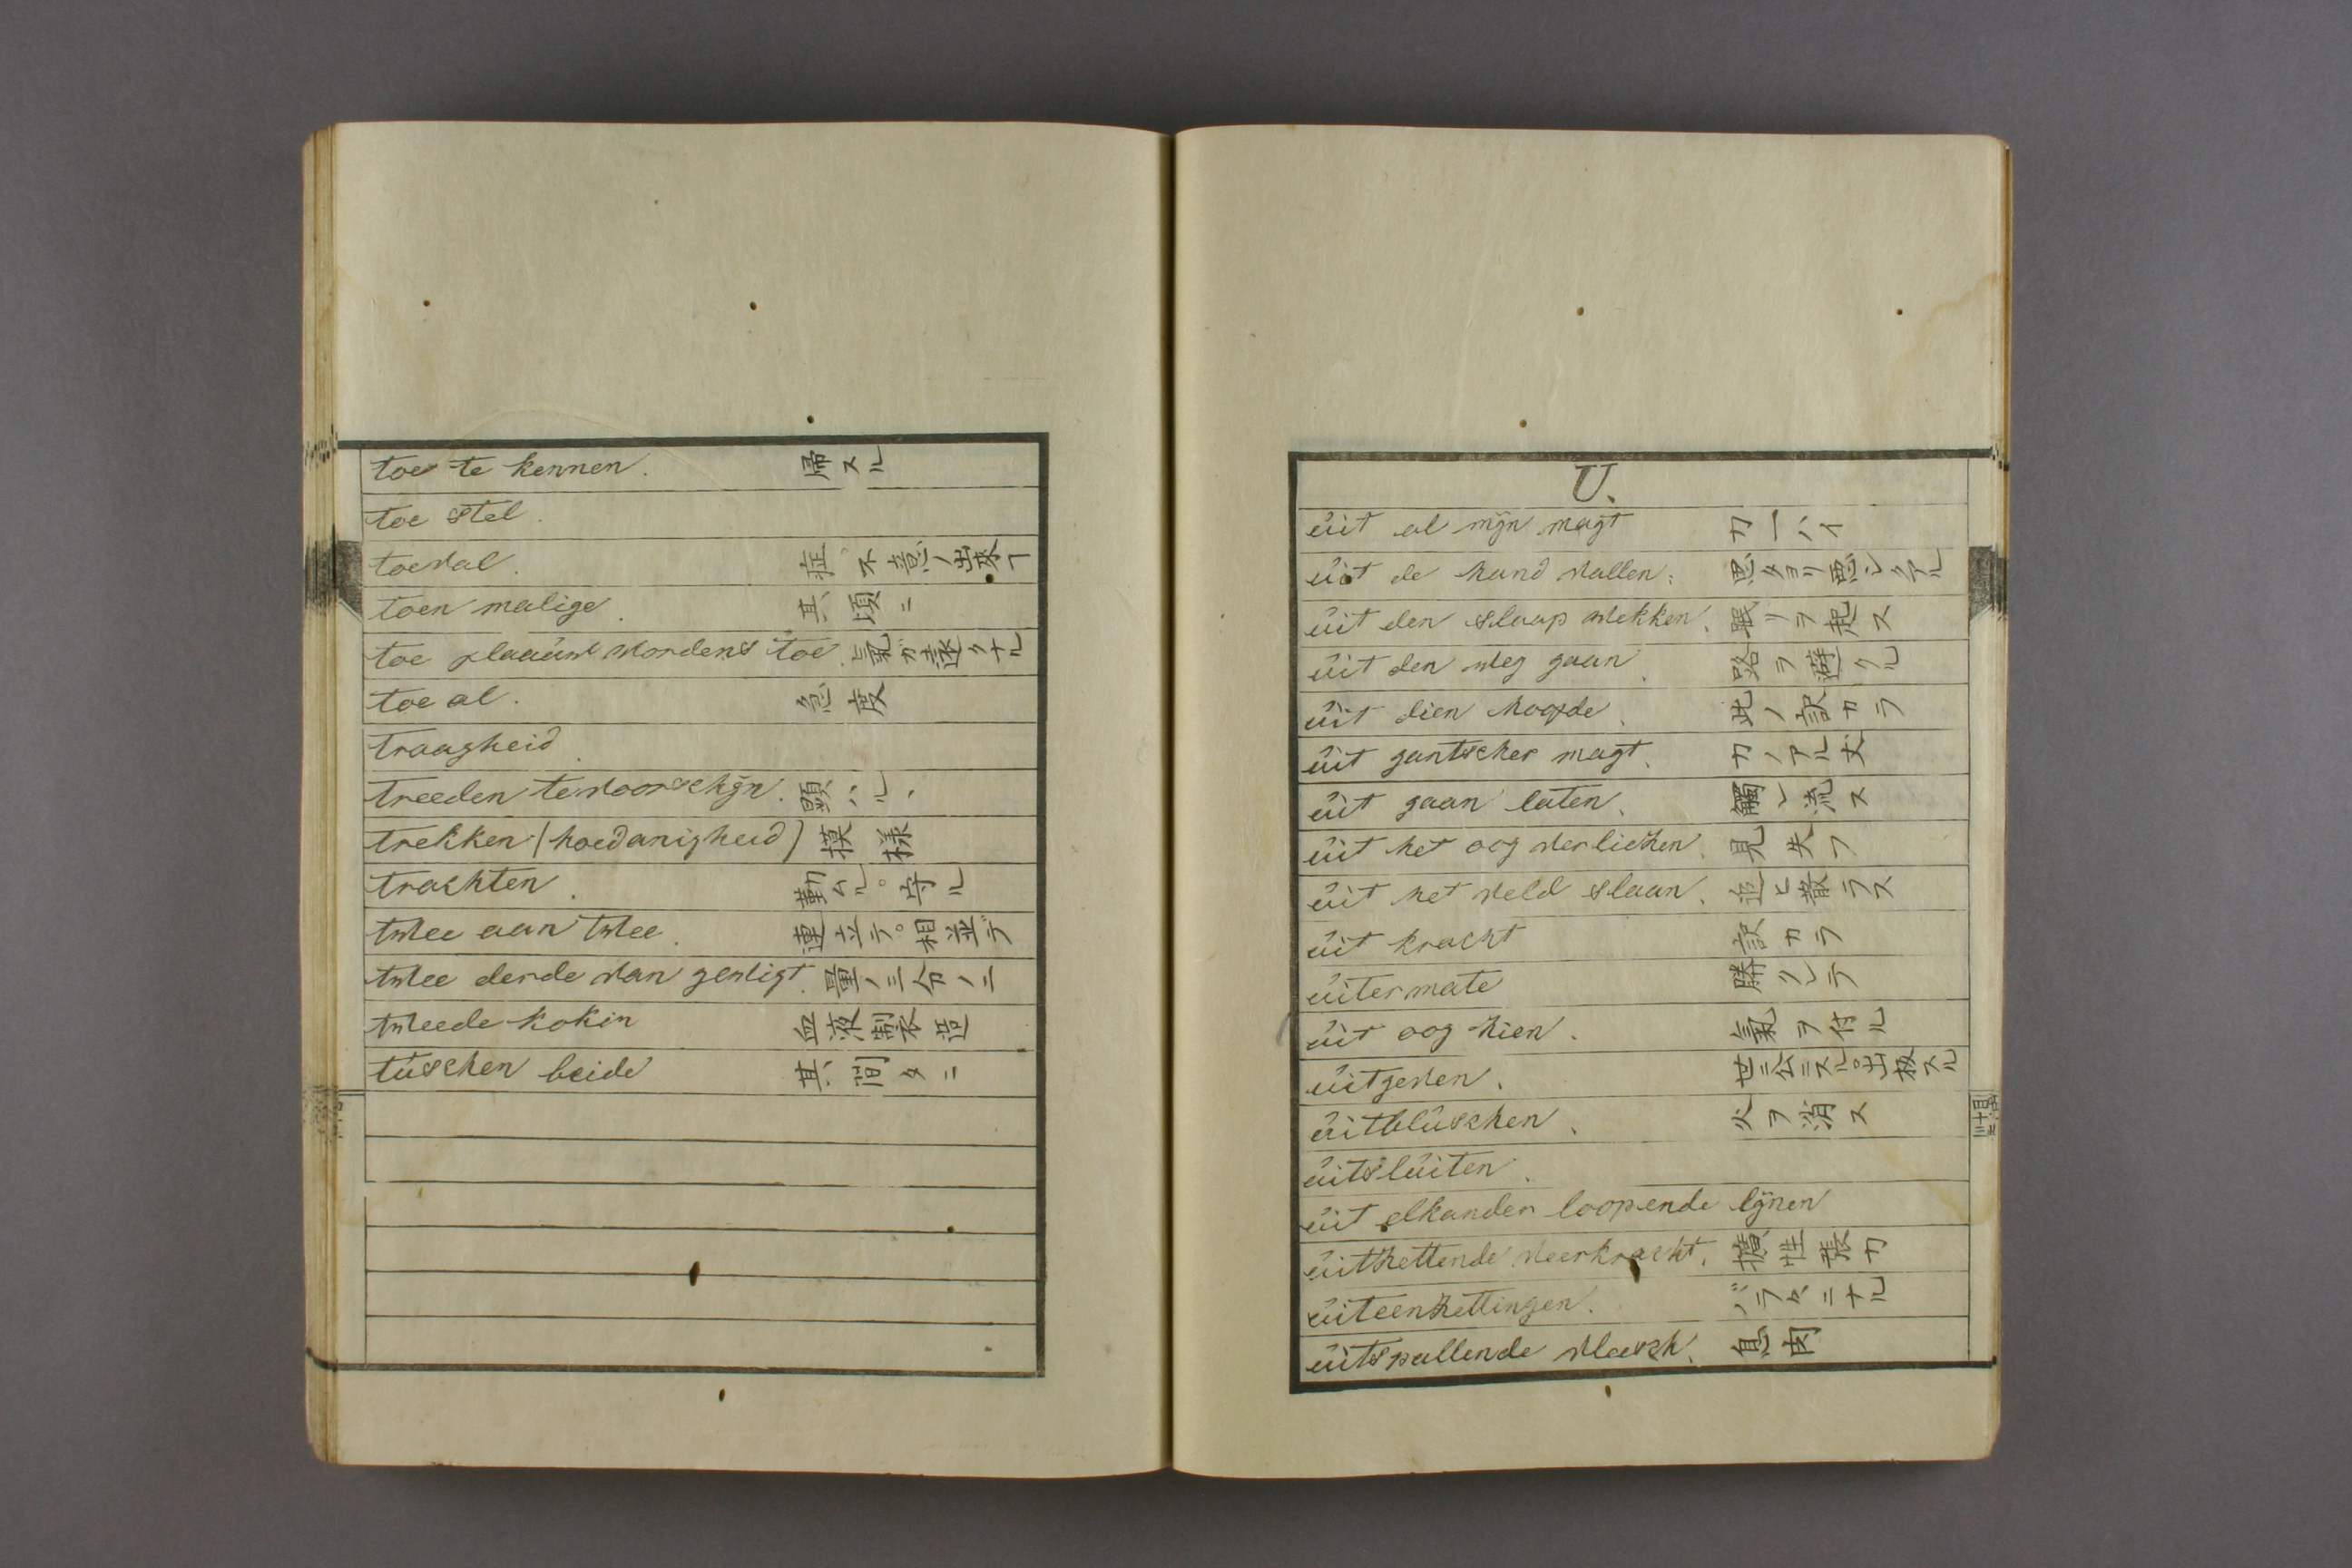 toe te kennen. 帰スル
toe stel.
toeval. 症 不意ノ出来ヿ
toen malige. 其頃ニ
toe flaauw wordens toe. 氣ガ遠クナル
toe al. 急度
traagheid.
treeden te voorschÿn. 顕ハル、
trekken (hoedanigheid) 摸様
trachten. 勤ムル。守ル
twee aan twee. 連立テ。相並デ
twee derde van gewigt. 量ノ三分ノ二
tweede kokin 血液製造
tùschen beide 其間タニ
U.
ùit al mÿn magt 力一ハイ
ùit de hand vallen. 思タヨリ悪シクアル
ùit den slaap wekken. 眠リヲ起ス
ùit den weg gaan. 路ヲ避クル
ùit dien hoofde. 此ノ訳カラ
ùit gantscher magt. 力ノアル丈
ùit gaan laten. 觸レ流ス
ùit het oog verliezen. 見失フ
ùit het veld slaan. 追ヒ散ラス
ùit kracht 訳カラ
ùitermate 勝レテ
ùit oog hien. 氣ヲ付ル
ùitgeven. 世ニ公ニスル。出板スル
ùitblùschen. 火ヲ消ス
ùitslùiten.
ùit elkander loopende lÿnen
ùitzettende veerkracht. 擴性張力
ùiteenzettingen. バラバラニナル
ùitspallende vleesch. 息肉